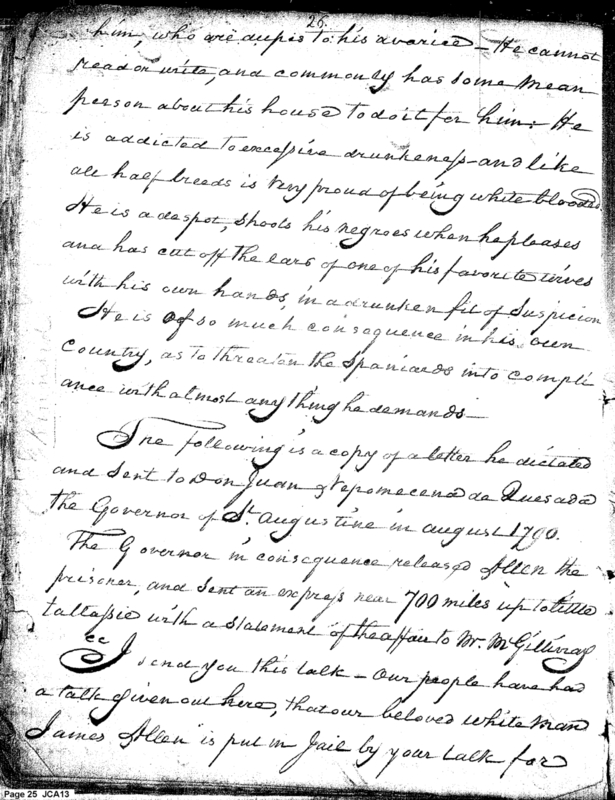 26.
him, who are dupes to his avarice — He cannot
read or write, and commonly has some mean
person about his house to do it for him: He
is addicted to excessive drunkeness — and like
all half breeds is very proud of being white blooded.
He is a despot, shoots his negroes when he pleases
and has cut off the ears of one of his favorite wives
with his own hands, in a drunken fit of suspicion
He is of so much consequence in his own
Country, as to threaten the Spaniards into compli
ance with almost any thing he demands —
The following is a copy of a letter he dictated
and sent to Don Juan Nepomecena de Quesada
the Governor of St. Augustine in august 1790.
The Governor in consequence released Allen the
prisoner, and sent an express near 700 miles up to little
tallassie with a statement of the affair to Mr. McGillivray
"I send you this talk — Our people have had
a talk given out here, that our beloved white man
James Allen is put in Jail by your talk for
Page 25 JCA13